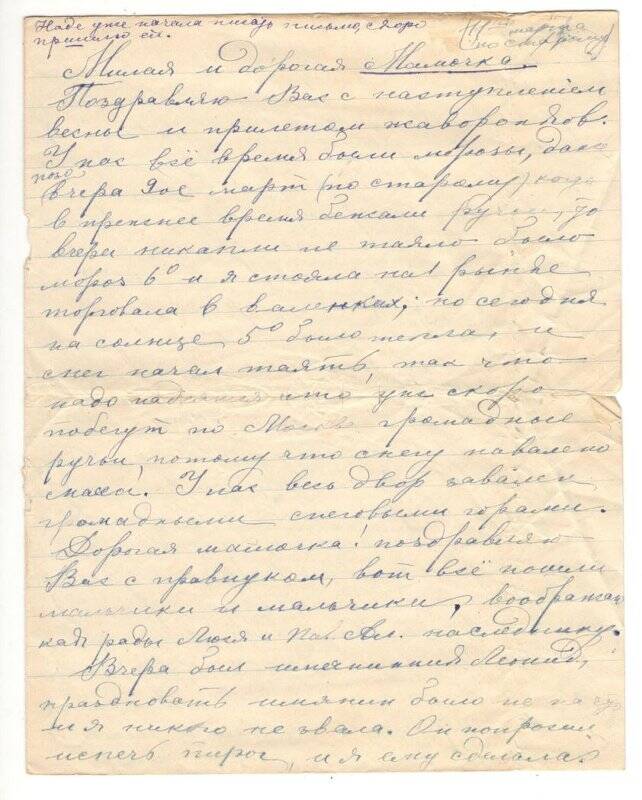 Наде уже начала писать письмо, скоро
пришлю ей.
марта
(по старому)
Милая и дорогая Мамочка.
Поздравляю Вас с наступлением
весны и прилетом жаворонков.
У нас всё время были морозы, даже
вчера 9ое март (по старому) когда
в прежнее время бежали ручьи, то
вчера ни капли не таяло было
мороз 6° и я стояла на рынке
торговала в валенках; но сегодня
на солнце 5° было тепла, и
снег начал таять, так что
надо надеяться что уже скоро
побегут по Москве громадные
ручьи, потому что снегу навалено
масса. У нас весь двор завален
громадными снеговыми горами.
Дорогая мамочка! поздравляю
Вас с правнуком, вот всё пошли
мальчики и мальчики, воображаю
как рады Люся и Ал. наследнику.
Вчера был именинник Леонид,
праздновать имянин было не на
и я никого не звала. Он попросил
испечь пирог, и я ему сделала.